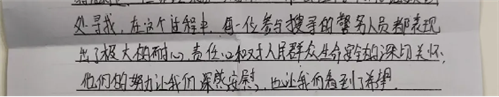 处寻找，在这个过程中，每一位参与搜寻的警务人员都表现
出了极大的耐心、责任心和对人民群众生命安全的深切关怀
他们的努力让我们深感安慰，也让我们看到了希望